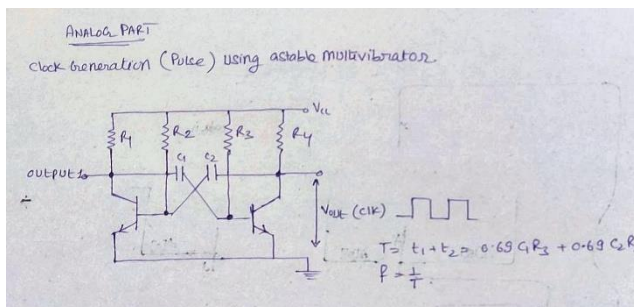 ANALOG PART
Clock Generation (Pulse) using astable multivibrator
VCC
R1
R2
R3
R4
C1
C2
OUTPUT
VOUT (CLK)
T = t1 + t2 = 0.69 C1R3 + 0.69 C2R
f = 1/T